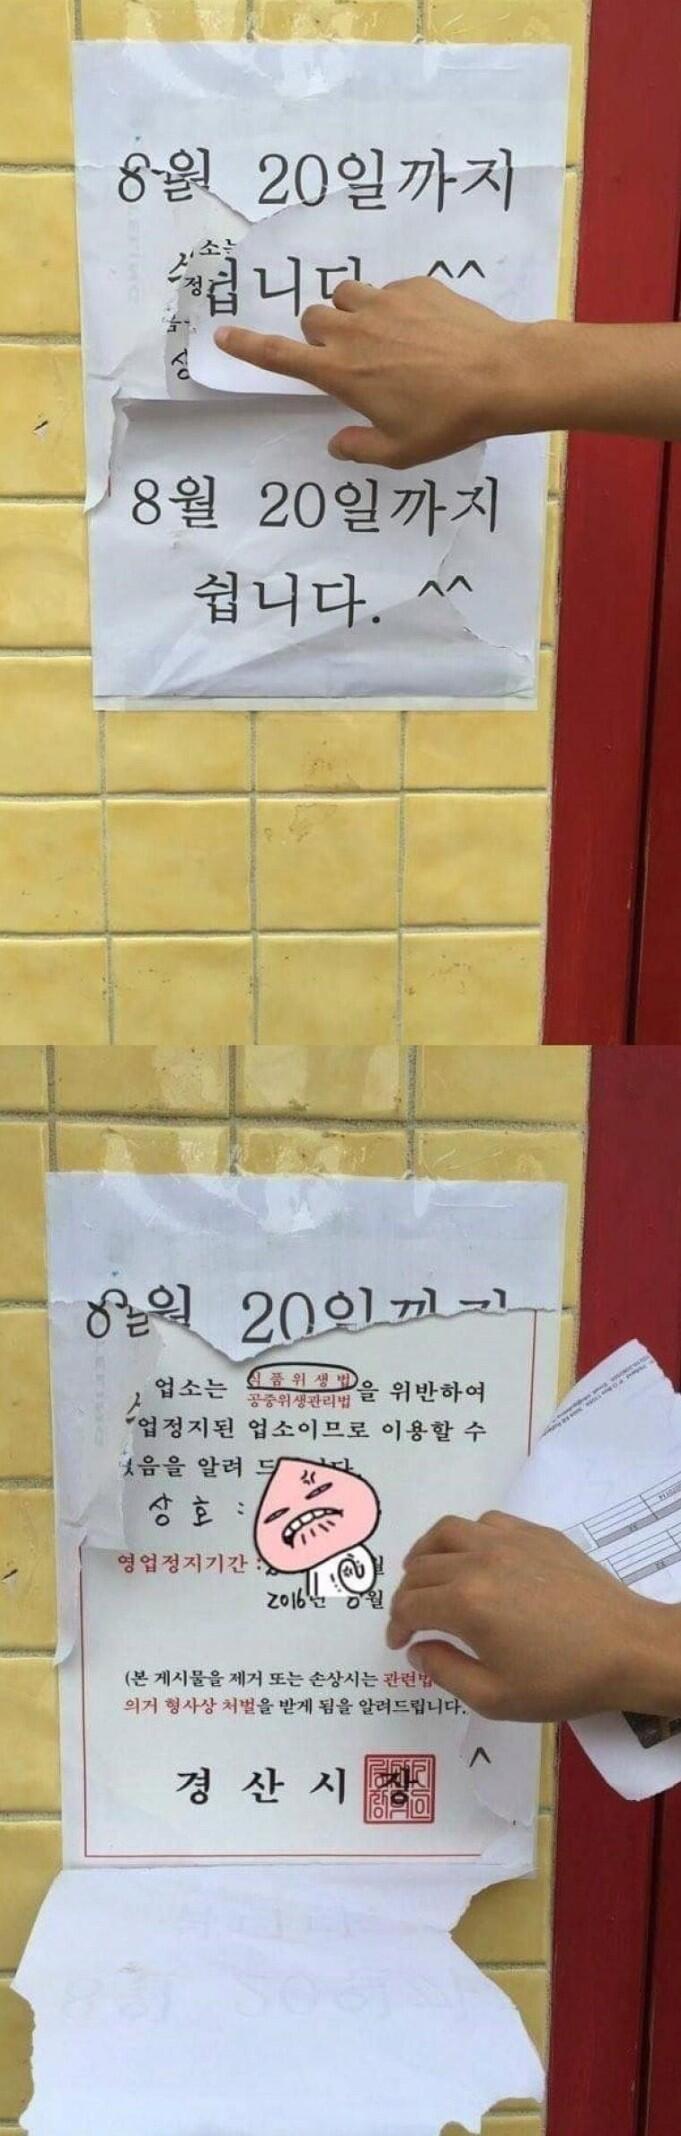 8월 20일까지
소는
정
쉽니다. ^^
상
8월 20일까지
쉽니다. ^^
8월 20일까지
업소는 식품위생법
공중위생관리법 을 위반하여
업정지된 업소이므로 이용할 수
없음을 알려 드
상 호 :
영업정지기간 :
2016년 월
(본 게시물을 제거 또는 손상시는 관련법
의거 형사상 처벌을 받게 됨을 알려드립니다.
^
경 산 시 장